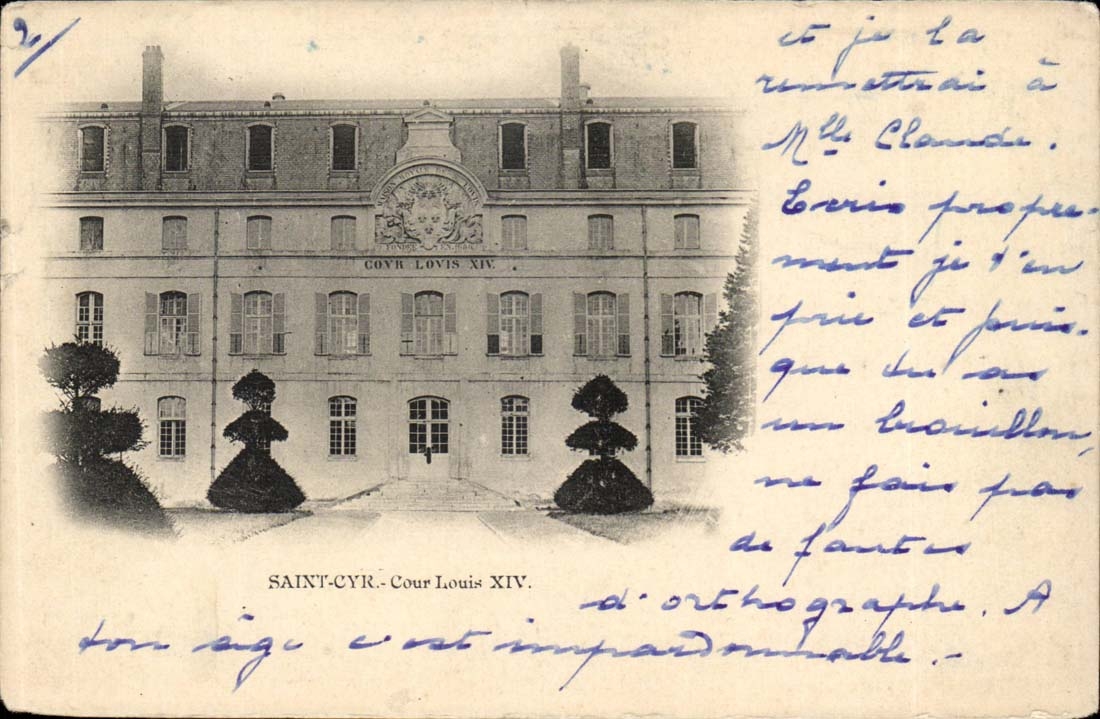 2/
et je la
remettrai à
Mlle Claude.
Ecris propre-
ment je t'en
prie et puis-
que tu as
un brouillon,
ne fais pas
de fautes
d'orthographe. A
ton âge c'est impardonnable.-
FONDÉE EN 1686
COVR LOVIS XIV.
SAINT-CYR.- Cour Louis XIV.